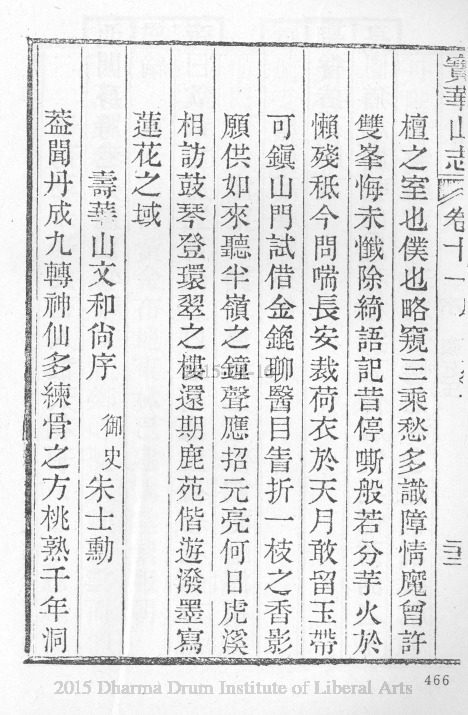 寶華山志 卷十一
檀之室也僕也略窺三乘愁多識障情魔曾許
雙峯悔未懺除綺語記昔停嘶般若分芋火於
懶殘秪今問喘長安裁荷衣於天月敢留玉帶
可鎭山門試借金鎞聊醫目眚折一枝之香影
願供如來聽半嶺之鐘聲應招元亮何日虎溪
相訪鼓琴登環翠之樓還期鹿苑偕遊潑墨寫
蓮花之域
壽華山文和尙序 御史朱士勳
葢聞丹成九轉神仙多練骨之方桃熟千年洞
466
2015 Dharma Drum Institute of Liberal Arts